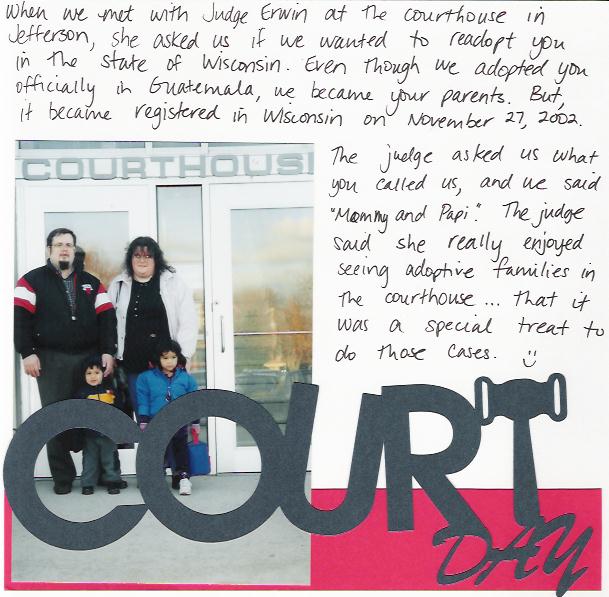 When we met with Judge Erwin at the courthouse in
Jefferson, she asked us if we wanted to readopt you
in the state of Wisconsin. Even though we adopted you
officially in Guatemala, we became your parents. But,
it became registered in Wisconsin on November 27, 2002.
COURTHOUS
The judge asked us what
you called us, and we said
"Mommy and Papi". The judge
said she really enjoyed
seeing adoptive families in
the courthouse... that it
was a special treat to
do those cases. :)
COURT
DAY